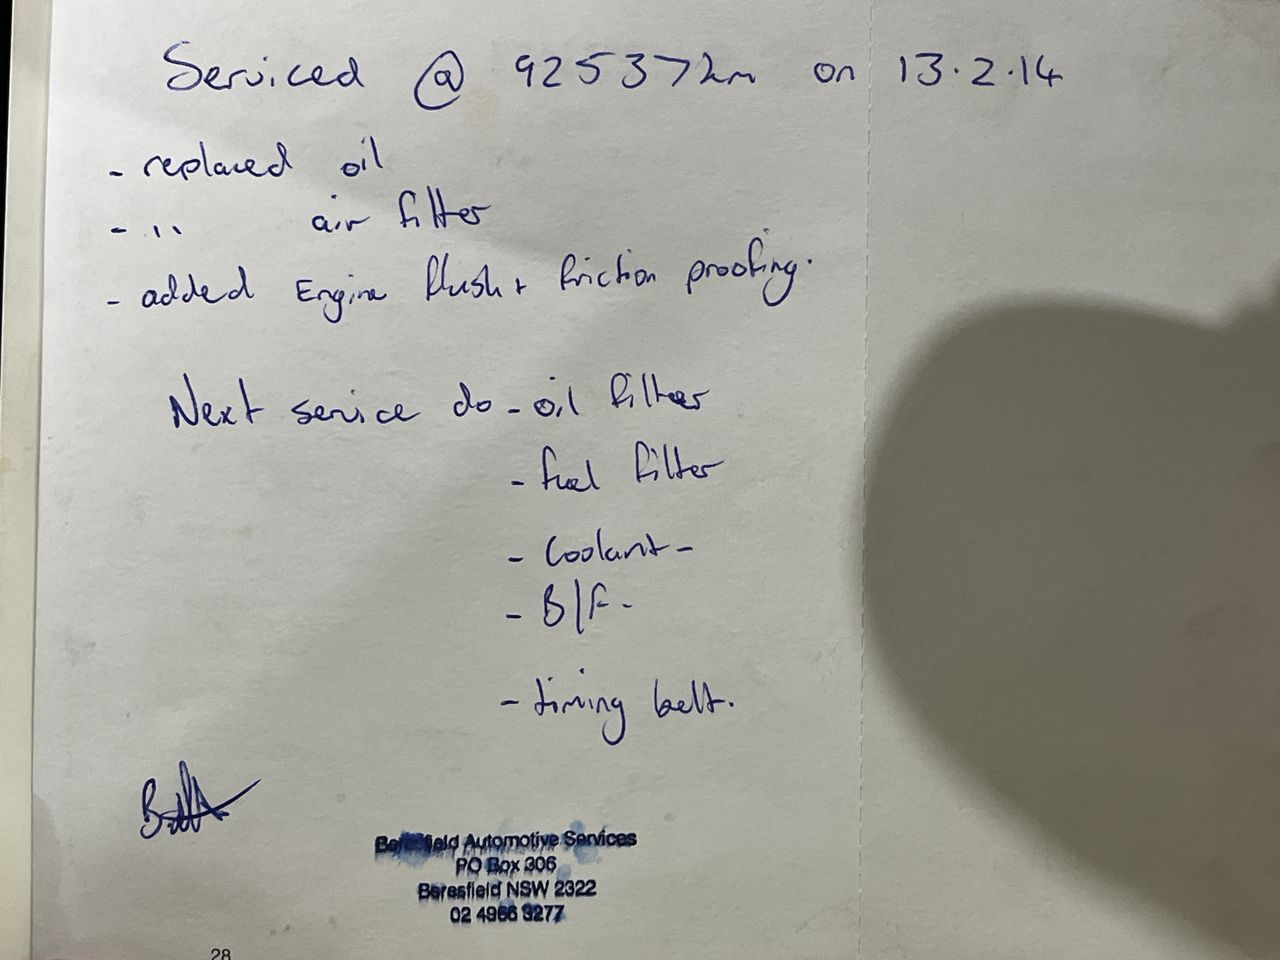 Serviced @ 92537km on 13.2.14
- replaced oil
- '' air filter
- added Engine flush + friction proofing.
Next service do - oil filter
- fuel filter
- Coolant -
- B/F.
- timing belt.
Beresfield Automotive Services
PO Box 306
Beresfield NSW 2322
02 4966 3277
28